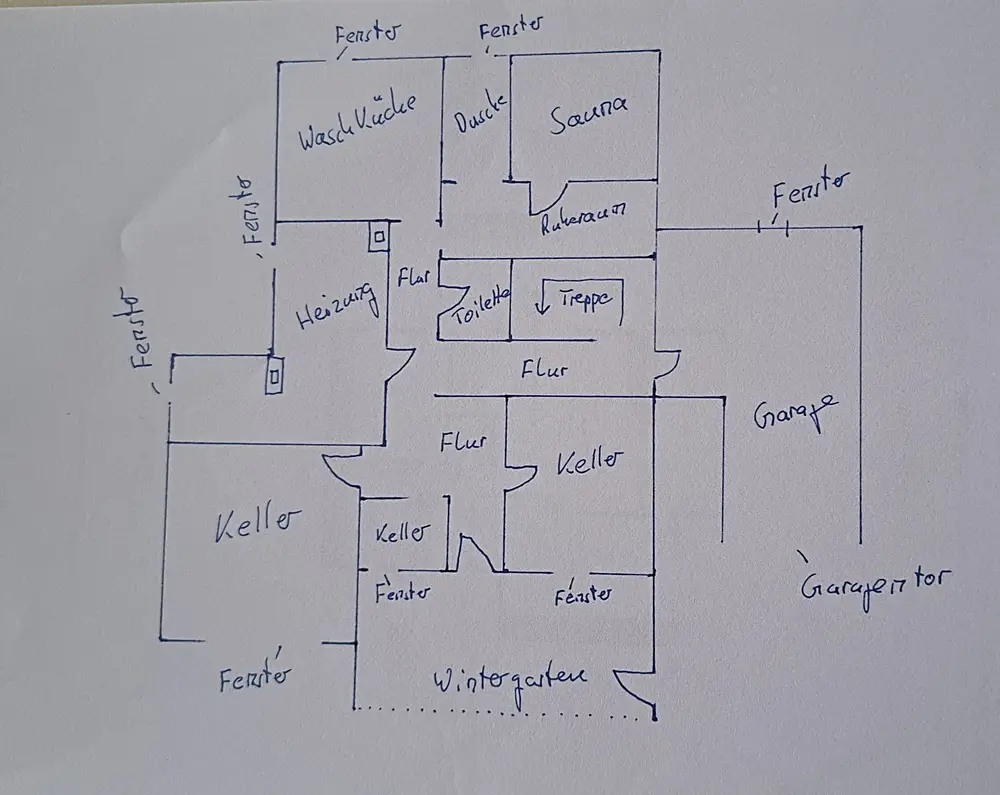 Fenster
Fenster
Waschküche
Dusche
Sauna
Fenster
Fenster
Ruheraum
Flur
Heizung
Toilette
Treppe
Fenster
Flur
Garage
Flur
Keller
Keller
Keller
Fenster
Fenster
Garagentor
Fenster
Wintergarten